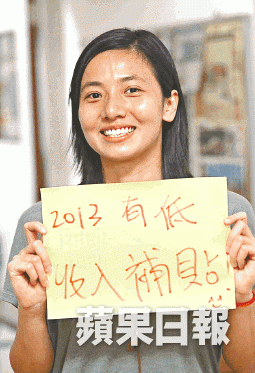 2013 有低
收入補貼!
蘋果日報